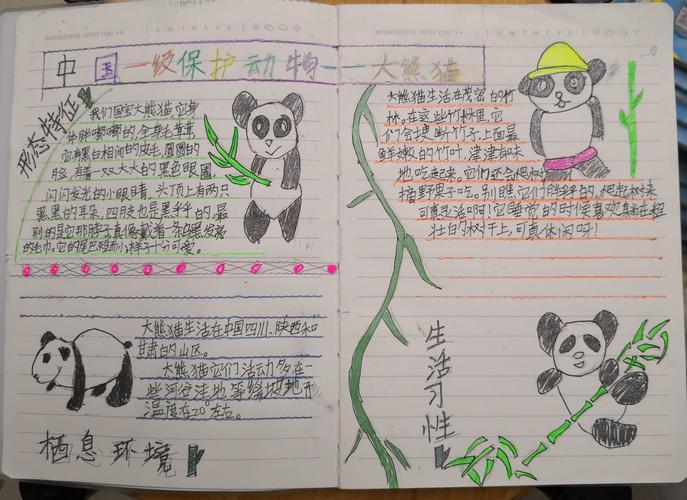 WONDERFUL WITH YOU
S M T W T F S
WONDERFUL WITH YOU
S M T W T F S
中国一级保护动物——大熊猫
形态特征
我们国宝大熊猫,它身
体胖嘟嘟的,全身毛茸茸
它有黑白相间的皮毛,圆圆的
脸,有着一双大大的黑色眼圈,
闪闪发光的小眼睛,头顶上有两只
黑黑的耳朵,四肢也是黑乎乎的,最
别的是它那脖子真像戴着一条
的毛巾,它的尾巴短而小,样子十分可爱。
大熊猫生活在中国四川、陕西和
甘肃的山区。
大熊猫它们活动多在一
些河谷洼地等缓坡地形
温度在20°左右。
栖息环境
大熊猫生活在茂密的竹
林。在这些竹林里,它
们会挑竹子上面最
鲜嫩的竹叶,津津有味
地吃起来。它们还会爬树
摘野果子吃。别瞧它们胖胖的,爬起树来
可真灵活啊!它睡觉的时候喜欢躺在粗
壮的树干上,可真休闲呀!
生活习性